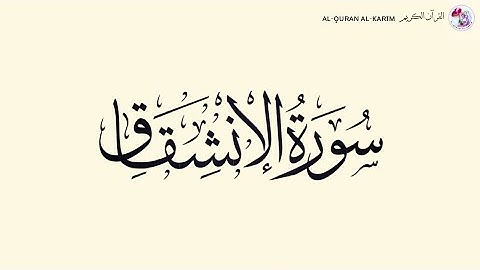 AL-QURAN AL-KARIM القرآن الكريم
سُورَةُ الإنْشِقَاقِ